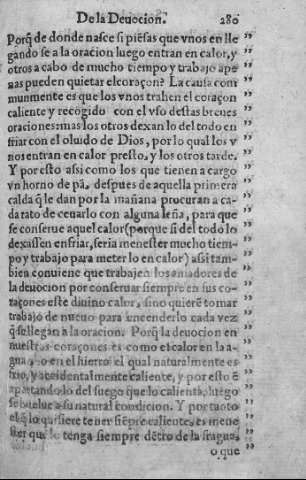 De la Deuocion. 280
Porq̃ de donde nasce si piẽsas que vnos en lle
gando se a la oracion luego entran en calor, y
otros a cabo de mucho tiempo y trabajo ape
nas pueden quietar el coraçon? La causa com
munmente es que los vnos trahen el coraçon
caliente y recogido con el vso destas breues
oraciones: mas los otros dexan lo del todo en
friar con el oluido de Dios, por lo qual los v
nos entran en calor presto, y los otros tarde.
Y por esto assi como los que tienen a cargo
vn horno de pã, despues de aquella primera
calda q̃ le dan por la mañana procuran a ca-
da rato de ceuarlo con alguna leña, para que
se conserue aquel calor (porque si del todo lo
dexassen enfriar, seria menester mucho tiem-
po y trabajo para meter lo en calor) assi tam-
bien conuiene que trabajen los amadores de
la deuocion por conseruar siempre en sus co-
raçones este diuino calor, sino quierẽ tomar
trabajo de nueuo para encenderlo cada vez
q̃ se llegan a la oracion. Porq̃ la deuocion en
nuestros coraçones es como el calor en la a-
gua, o en el hierro: el qual naturalmente es
frio, y accidentalmente caliente, y por esto ẽ
apartando lo del fuego que lo calienta, luego
se buelue a su natural condicion. Y por tãto
el q̃ lo quisiere tener siẽpre caliente, es mene
ster que lo tenga siempre dẽtro de la fragua,
o que